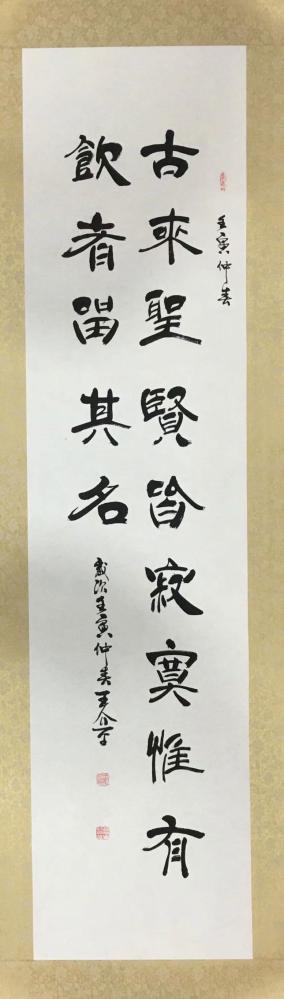 壬寅仲春
古來聖賢皆寂寞惟有
飲者留其名
歲次壬寅仲春王介平